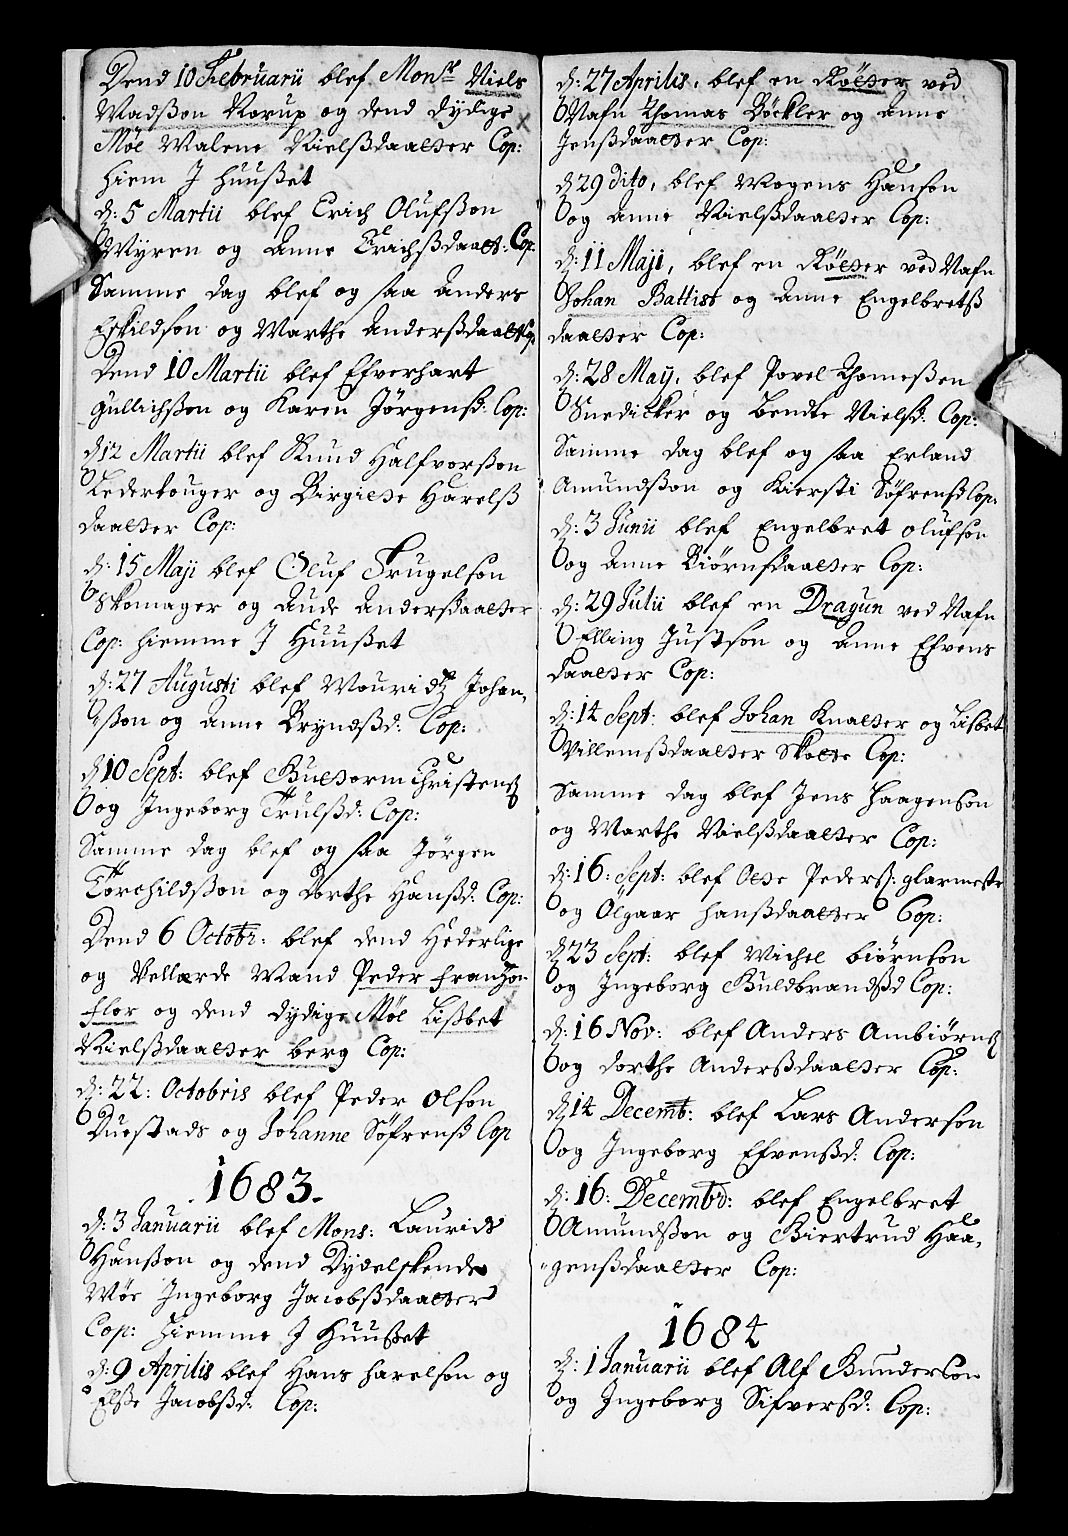 Dend 10 Februarii blef Monsr Niels
Madsson Rorup og dend dydige
Møe Malene Nielsdaatter Cop:
hiem J huusset
d: 5 Martii blef Erich Olufsson
Myren og Anne Erichsdaatt: Cop:
Samme dag blef og saa Anders
Eskildson og Marthe Andersdaatt Cop
Dend 10 Martii blef Efverhart
Gullichsson og Karen Jörgensd: Cop:
d 12 Martii blef Knud Halfvorsson
Ledertouger og Birgitte Harels
daatter Cop:
d: 15 Maji blef Oluf Trugelson
Skomager og Aude Andersdaatter
Cop: hiemme J Huusset
d: 27 Augusti blef Mouridtz Johan-
sson og Anne Bryndsd: Cop:
d 10 Sept: blef Guttorm Christens
og Ingeborg Trulsd: Cop:
Samme dag blef og saa Jörgen
Torchildsson og Dorthe Hansd: Cop:
Dend 6 Octobr: blef dend Hederlige
og Vellærde Mand Peder Franzon
Flor og dend dydige Møe Lisbet
Nielsdaatter berg Cop:
d: 22: Octobris blef Peder Olson
Duestads og Johanne Söfrensd Cop
1683.
d: 3 Januarii blef Mons: Laurids
Hansson og dend Dydelskende
Møe Ingeborg Jacobsdaatter
Cop: hiemme J Huusset
d: 9 Aprilis blef Hans Harelson og
Else Jacobsd: Cop:
d: 27 Aprilis, blef en Röter ved
Nafn Thomas Böckler og Anne
Jensdaatter Cop:
d 29 dito, blef Mogens Hanson
og Anne Nielsdaatter Cop:
d: 11 Maji, blef en Röter ved Nafn
Johan Battist og Anne Engelbrets
daatter Cop:
d: 28 Maij, blef Povel Thomesen
Snedicker og Bendte Nielsd: Cop:
Samme dag blef og saa Erland
Amundsson og Kiersti Söfrensd Cop:
d: 3 Junii blef Engelbret Olufson
og Anne Biörnsdaatter Cop:
d: 29 Julii blef en Dragun ved Nafn
Elling Justson og Anne Efvens
daatter Cop:
d: 14 Sept: blef Johan Knatter og Lisbet
Villemsdaatter Skotte Cop:
Samme dag blef Jens Haagenson
og Marthe Nielsdaatter Cop:
d: 16: Sept: blef Otte Peders: glarmeste
og Olgaar Hansdaatter Cop:
d 23 Sept: blef Michel Biörnson
og Ingeborg Guldbrandsd Cop:
d: 16 Nov: blef Anders Ambiörns
og Dorthe Andersdaatter Cop:
d 14 Decemb: blef Lars Anderson
og Ingeborg Efvensd: Cop:
d: 16: Decembr: blef Engelbret
Amundsson og Giertrud Haa-
gensdaatter Cop:
1684
d: 1 Januarii blef Alf Gunderson
og Ingeborg Sifversd: Cop: